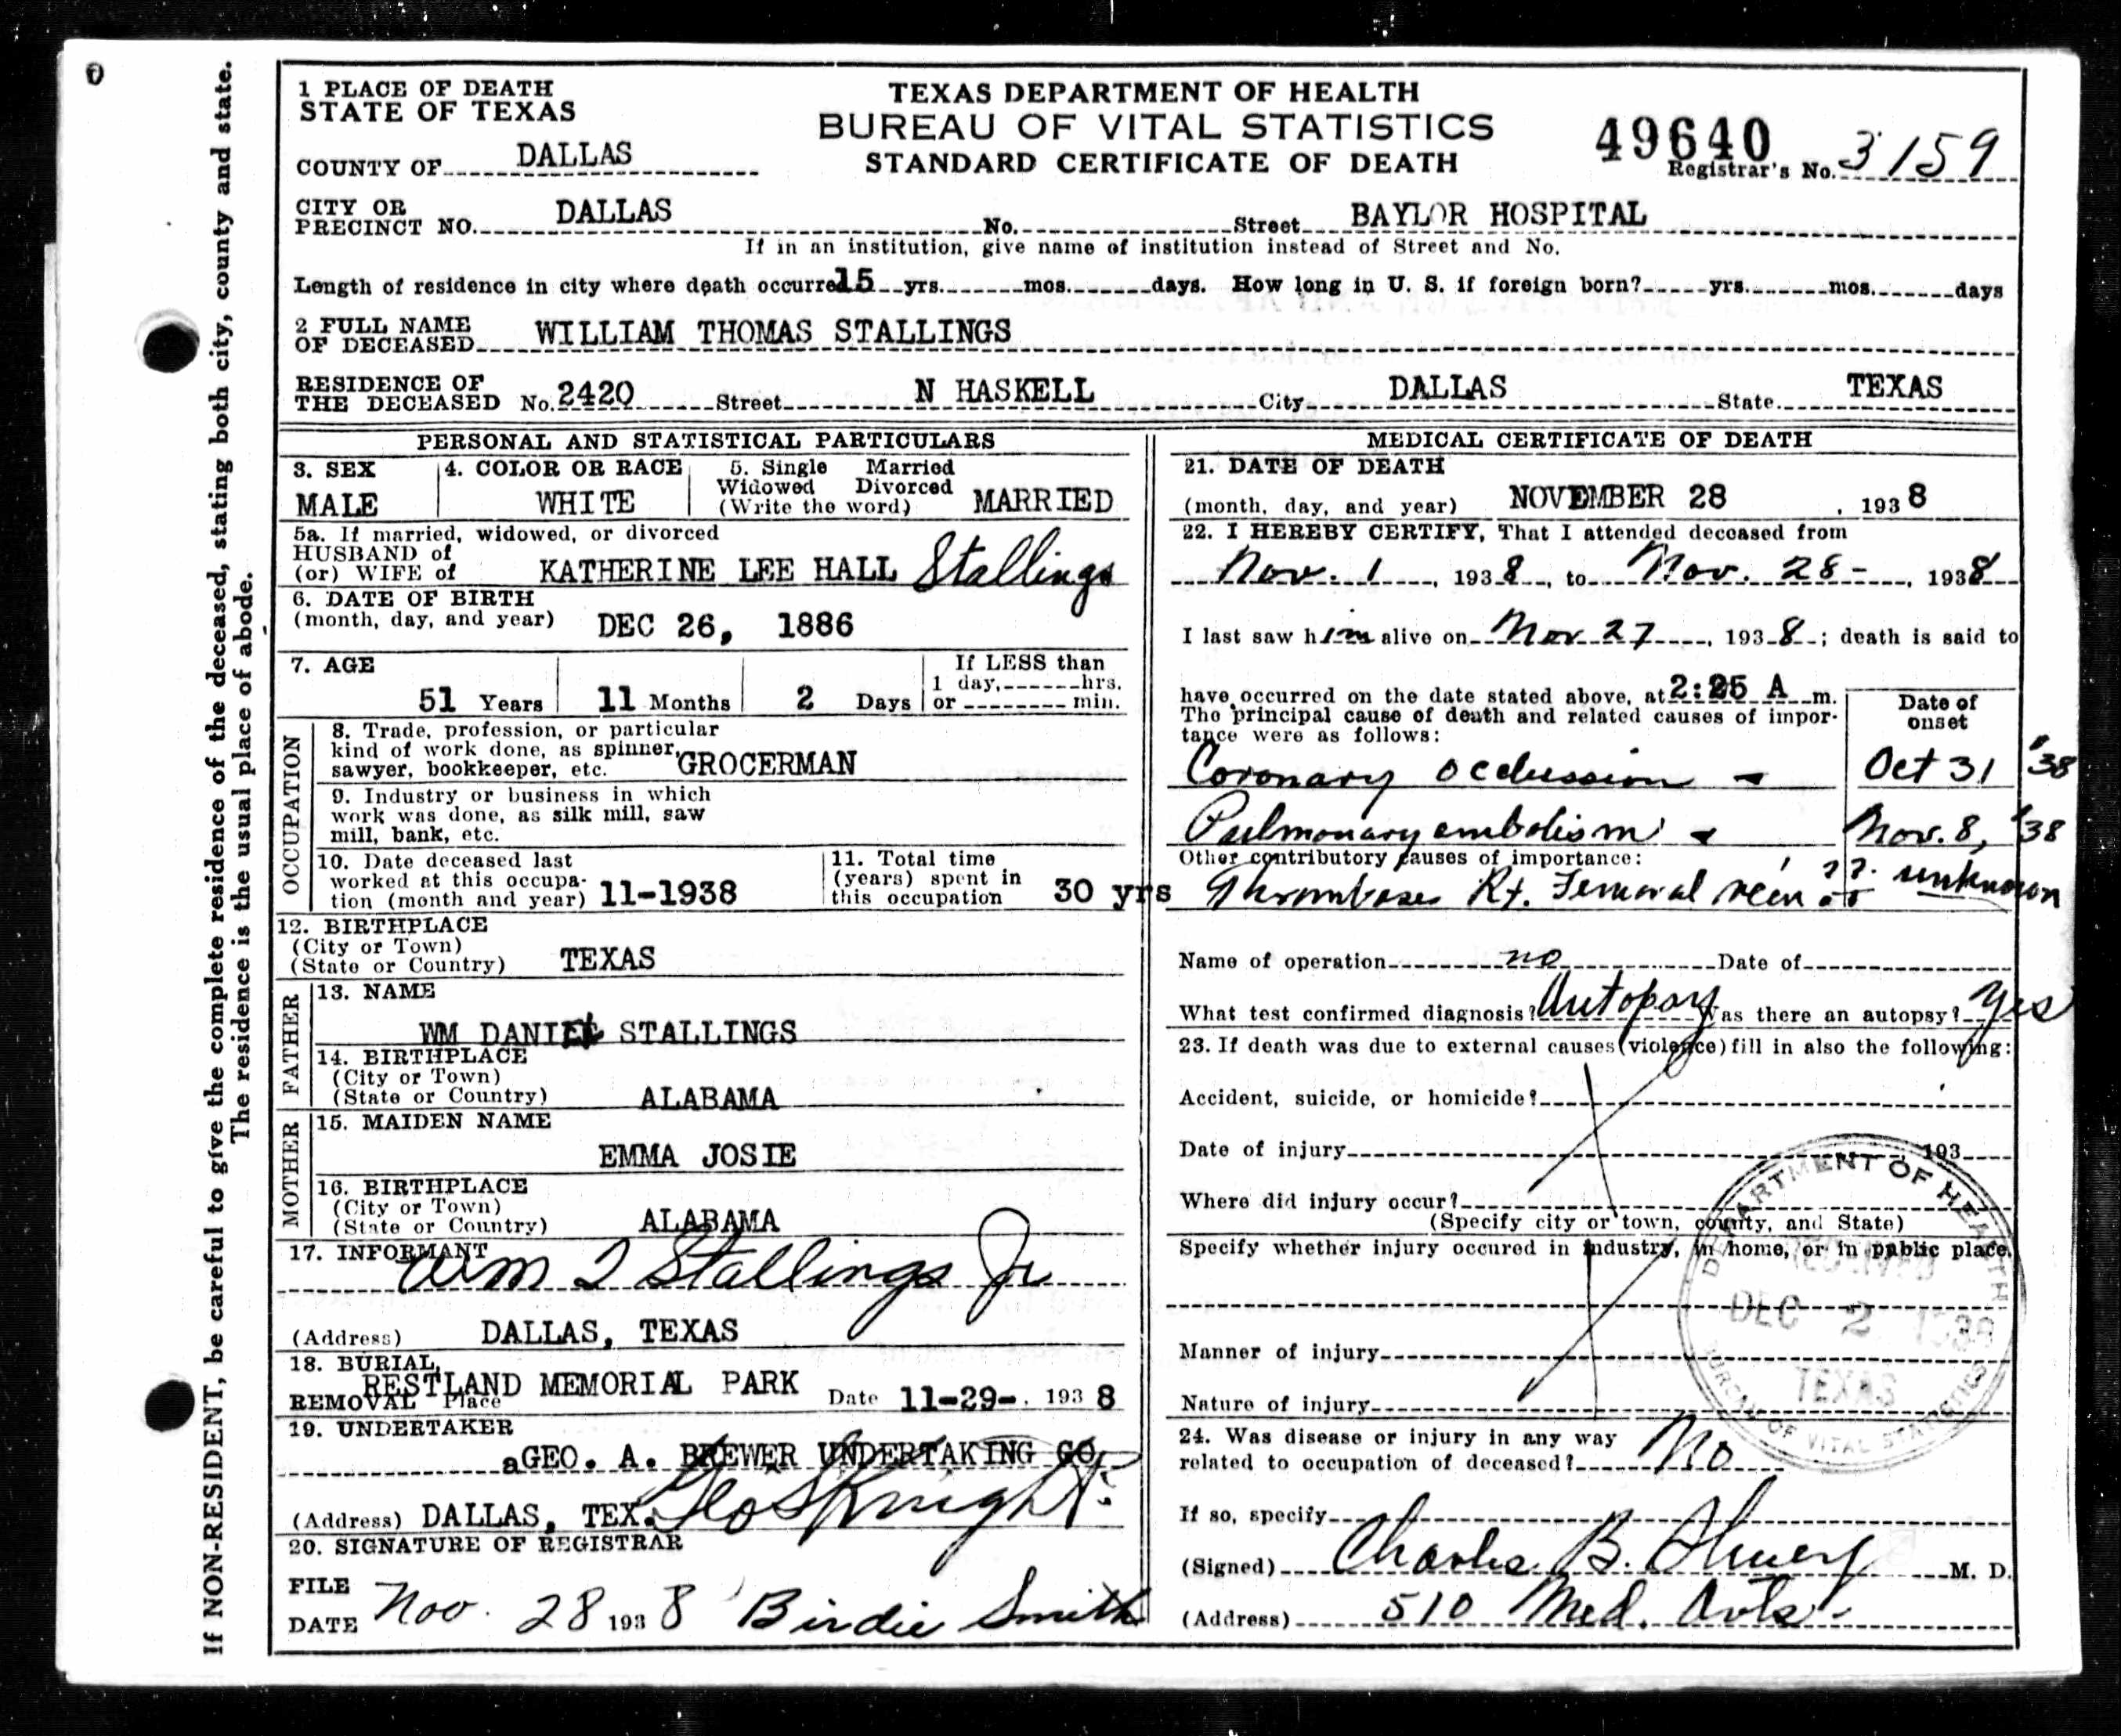 1 PLACE OF DEATH
STATE OF TEXAS
COUNTY OF DALLAS
TEXAS DEPARTMENT OF HEALTH
BUREAU OF VITAL STATISTICS
STANDARD CERTIFICATE OF DEATH
49640
Registrar's No. 3159
CITY OR
PRECINCT NO. DALLAS No. Street BAYLOR HOSPITAL
If in an institution, give name of institution instead of Street and No.
Length of residence in city where death occurred 15 yrs. mos. days. How long in U. S. if foreign born? yrs. mos. days
2 FULL NAME
OF DECEASED WILLIAM THOMAS STALLINGS
RESIDENCE OF
THE DECEASED No. 2420 Street N HASKELL City DALLAS State TEXAS
PERSONAL AND STATISTICAL PARTICULARS
3. SEX
MALE
4. COLOR OR RACE
WHITE
5. Single Married
Widowed Divorced
(Write the word) MARRIED
5a. If married, widowed, or divorced
HUSBAND of
(or) WIFE of KATHERINE LEE HALL Stallings
6. DATE OF BIRTH
(month, day, and year) DEC 26, 1886
7. AGE
51 Years 11 Months 2 Days
If LESS than
1 day, hrs.
or min.
OCCUPATION
8. Trade, profession, or particular
kind of work done, as spinner,
sawyer, bookkeeper, etc. GROCERMAN
9. Industry or business in which
work was done, as silk mill, saw
mill, bank, etc.
10. Date deceased last
worked at this occupa-
tion (month and year) 11-1938
11. Total time
(years) spent in
this occupation 30 yrs
12. BIRTHPLACE
(City or Town)
(State or Country) TEXAS
FATHER
13. NAME
WM DANIEL STALLINGS
14. BIRTHPLACE
(City or Town)
(State or Country) ALABAMA
MOTHER
15. MAIDEN NAME
EMMA JOSIE
16. BIRTHPLACE
(City or Town)
(State or Country) ALABAMA
17. INFORMANT
Wm T Stallings Jr
(Address) DALLAS, TEXAS
18. BURIAL,
REMOVAL Place RESTLAND MEMORIAL PARK Date 11-29-, 1938
19. UNDERTAKER
GEO. A. BREWER UNDERTAKING CO
(Address) DALLAS, TEX. Knight
20. SIGNATURE OF REGISTRAR
FILE
DATE Nov. 28 1938 Birdie Smith
MEDICAL CERTIFICATE OF DEATH
21. DATE OF DEATH
(month, day, and year) NOVEMBER 28, 1938
22. I HEREBY CERTIFY, That I attended deceased from
Nov. 1, 1938, to Nov. 28-, 1938
I last saw him alive on Nov 27, 1938; death is said to
have occurred on the date stated above, at 2:25 A m.
The principal cause of death and related causes of impor-
tance were as follows:
Date of
onset
Coronary occlussion - Oct 31 '38
Pulmonary embolism - Nov. 8, '38
Other contributory causes of importance:
Thromboses Rt. Femoral vein ?? unknown
Name of operation no Date of
What test confirmed diagnosis? Autopsy Was there an autopsy? Yes
23. If death was due to external causes (violence) fill in also the following:
Accident, suicide, or homicide?
Date of injury 193
Where did injury occur?
(Specify city or town, county, and State)
Specify whether injury occured in industry, in home, or in public place.
Manner of injury
Nature of injury
DEPARTMENT OF HEALTH
RECEIVED
DEC 2 1938
TEXAS
BUREAU OF VITAL STATISTICS
24. Was disease or injury in any way
related to occupation of deceased? No
If so, specify
(Signed) Charles B. M. D.
(Address) 510 Med. Arts.
If NON-RESIDENT, be careful to give the complete residence of the deceased, stating both city, county and state.
The residence is the usual place of abode.